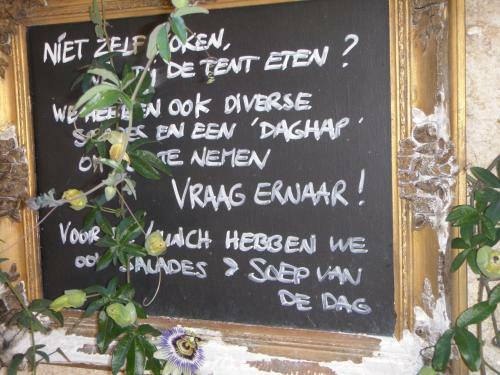 NIET ZELF KOKEN,
DE TENT ETEN ?
WE HEBBEN OOK DIVERSE
EN EEN 'DAGHAP'
TE NEMEN
VRAAG ERNAAR !
VOOR LUNCH HEBBEN WE
OOK SALADES > SOEP VAN
DE DAG